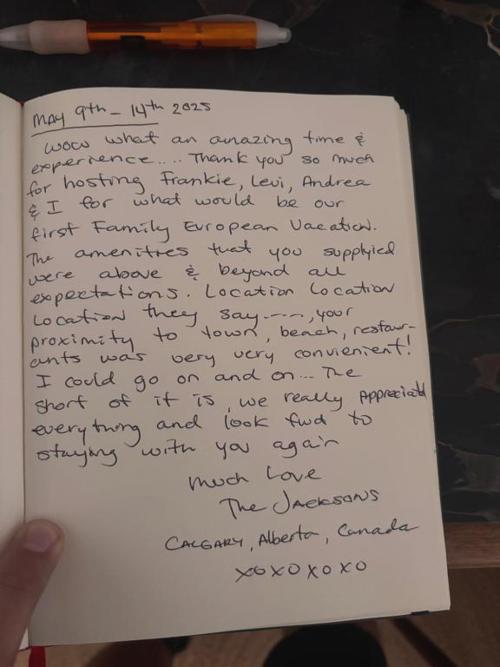 MAY 9th - 14th 2025
WOW what an amazing time &
experience.... Thank you so much
for hosting Frankie, Levi, Andrea
& I for what would be our
first Family European Vacation.
The amenities that you supplyied
were above & beyond all
expectations. Location Location
Location they say----, your
proximity to town, beach, restaur-
ants was very very convienient!
I could go on and on... The
short of it is, we really Appreciated
everything and look fwd to
staying with you again
Much Love
The JACKSONS
CALGARY, Alberta, Canada
XOXOXOXO